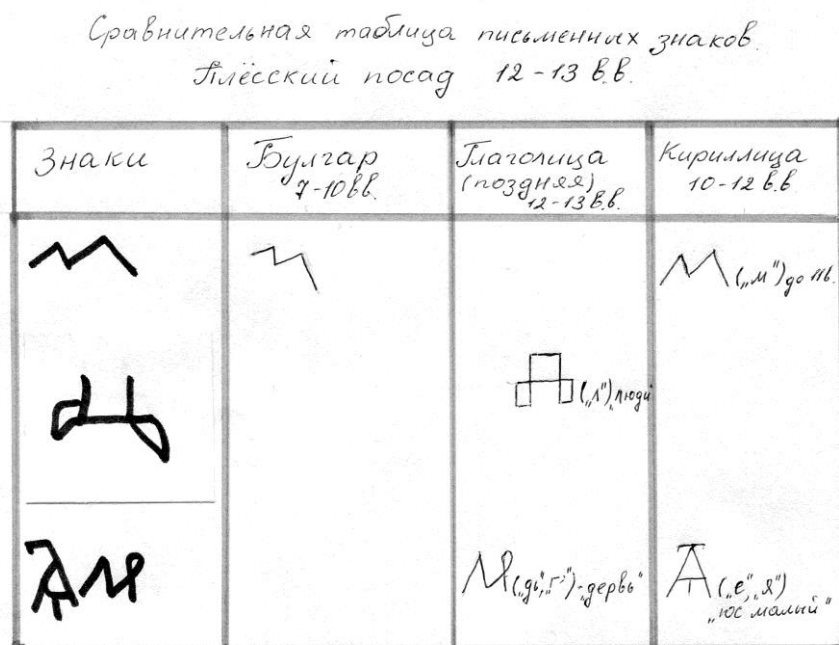 Сравнительная таблица письменных знаков.
Плёсский посад 12-13 в.в.
Знаки
Булгар
7-10вв.
Глаголица
(поздняя)
12-13в.в.
Кириллица
10-12 в.в
(„м") до 11в.
(„л") „люди
(„дь",„г'")-„дервь"
(„е",„я")
„юс малый"